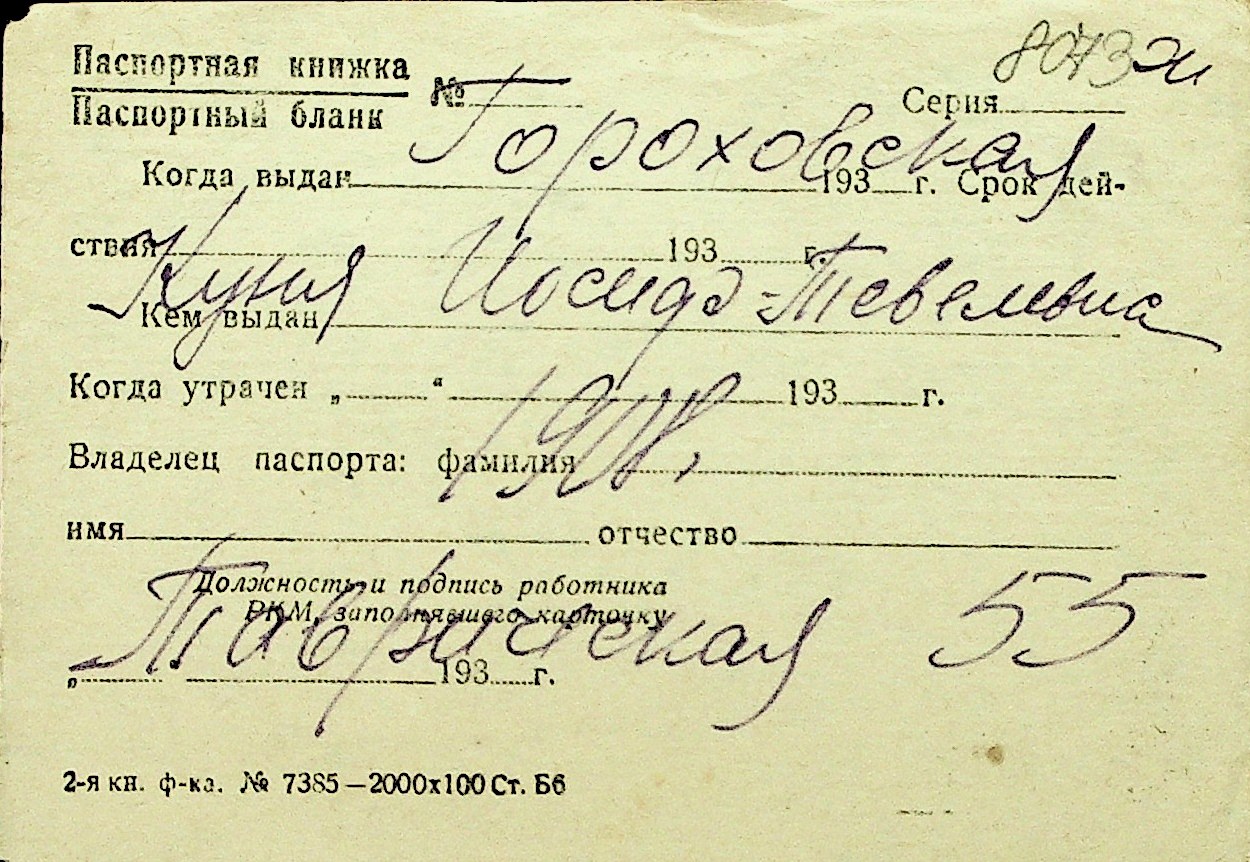 Паспортная книжка
Паспортный бланк
№ Серия
8073
Гороховская
Когда выдан 193 г. Срок дей-
ствия 193 г.
Куня Иосидэ-Тевельвна
Кем выдан
Когда утрачен „ “ 193 г.
Владелец паспорта: фамилия
имя отчество
Должность и подпись работника
РКМ, заполнявшего карточку
Таврическая 55
„ 193 г.
2-я кн. ф-ка. № 7385—2000х100 Ст. Б6